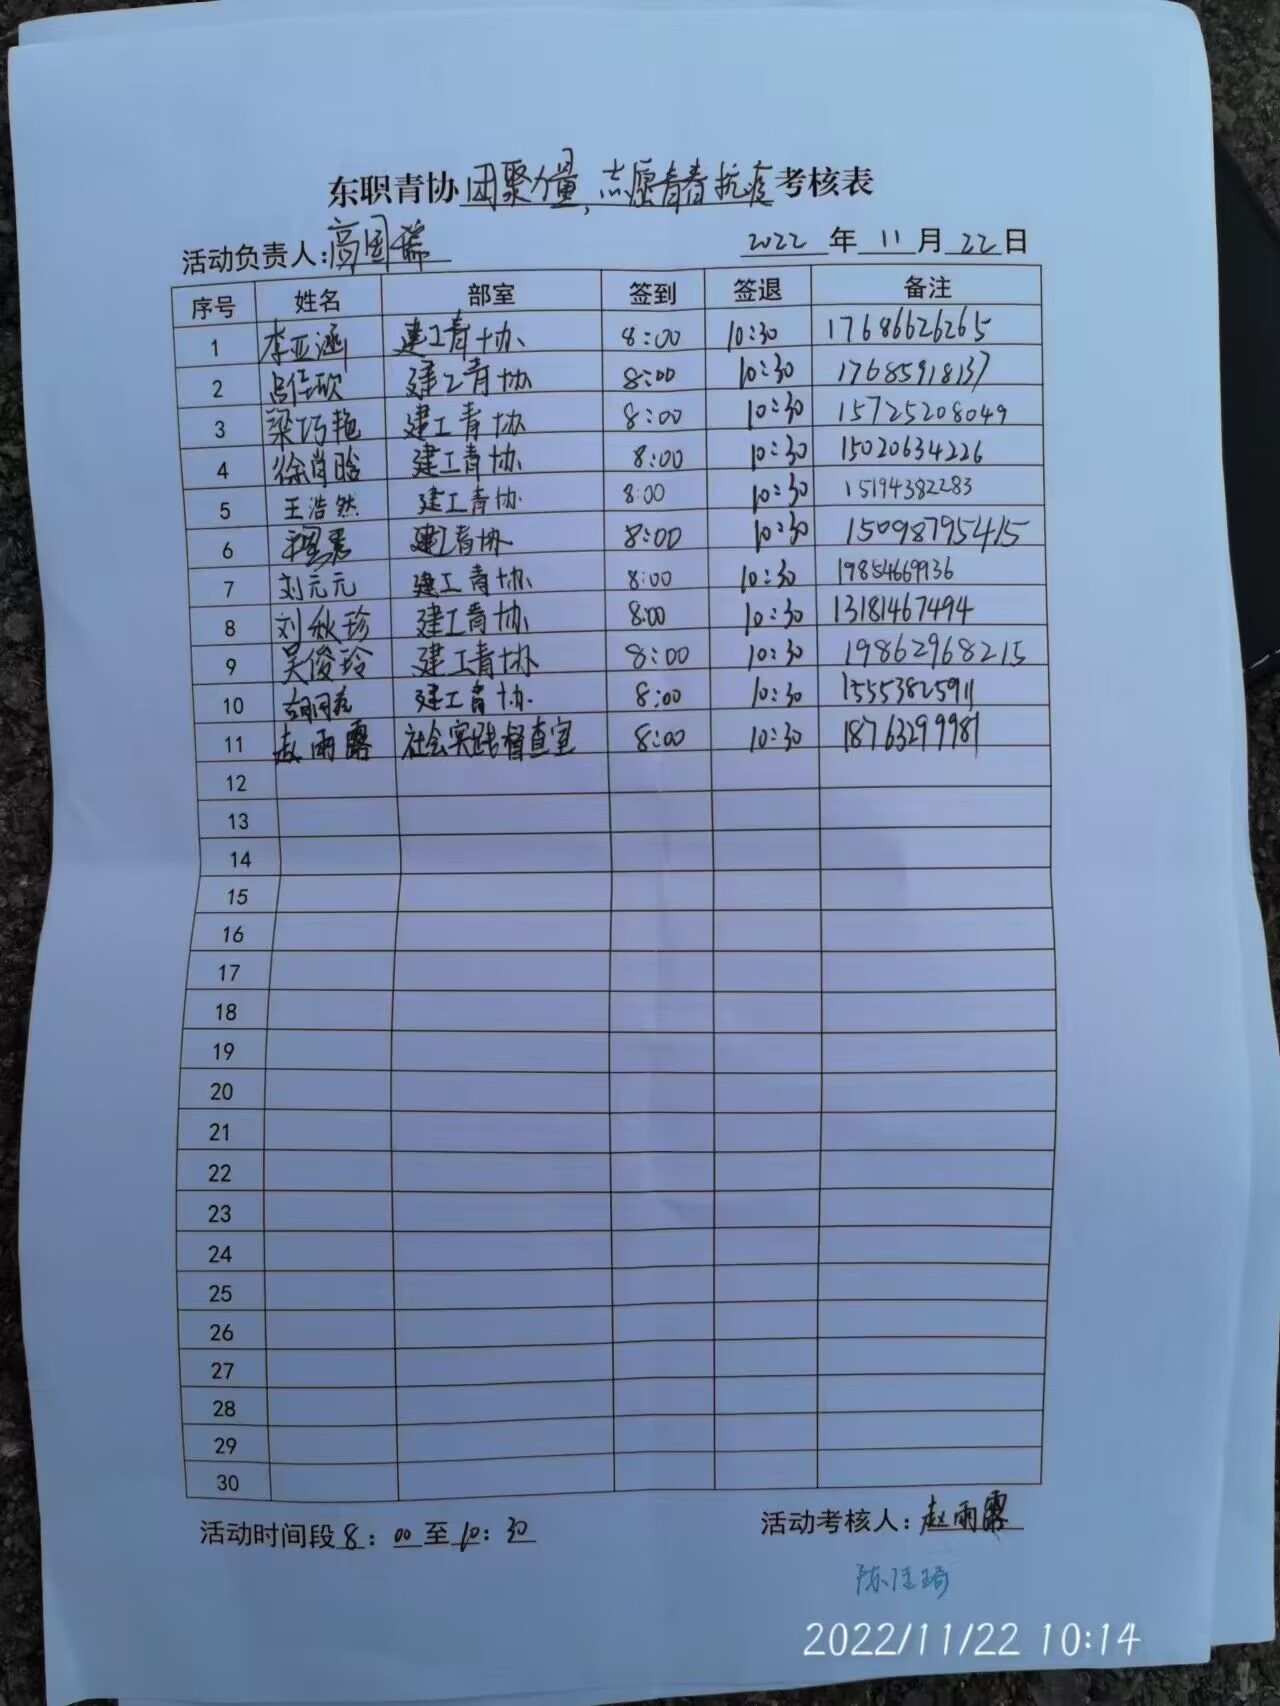 东职青协团聚力量,志愿青春抗疫考核表
活动负责人:高国瑞 2022年11月22日
序号 姓名 部室 签到 签退 备注
1 李亚涵 建工青协 8:00 10:30 17686626265
2 建工青协 8:00 10:30 17685918137
3 梁巧艳 建工青协 8:00 10:30 15725208049
4 徐肖晗 建工青协 8:00 10:30 15020634226
5 王浩然 建工青协 8:00 10:30 15194382283
6 建工青协 8:00 10:30 15098795415
7 刘元元 建工青协 8:00 10:30 19854669936
8 刘秋珍 建工青协 8:00 10:30 13181467494
9 吴俊玲 建工青协 8:00 10:30 19862968215
10 建工青协 8:00 10:30 15553825911
11 赵雨露 社会实践督查室 8:00 10:30 18763299981
12
13
14
15
16
17
18
19
20
21
22
23
24
25
26
27
28
29
30
活动时间段8:00至10:30 活动考核人:赵雨露
陈佳琦
2022/11/22 10:14